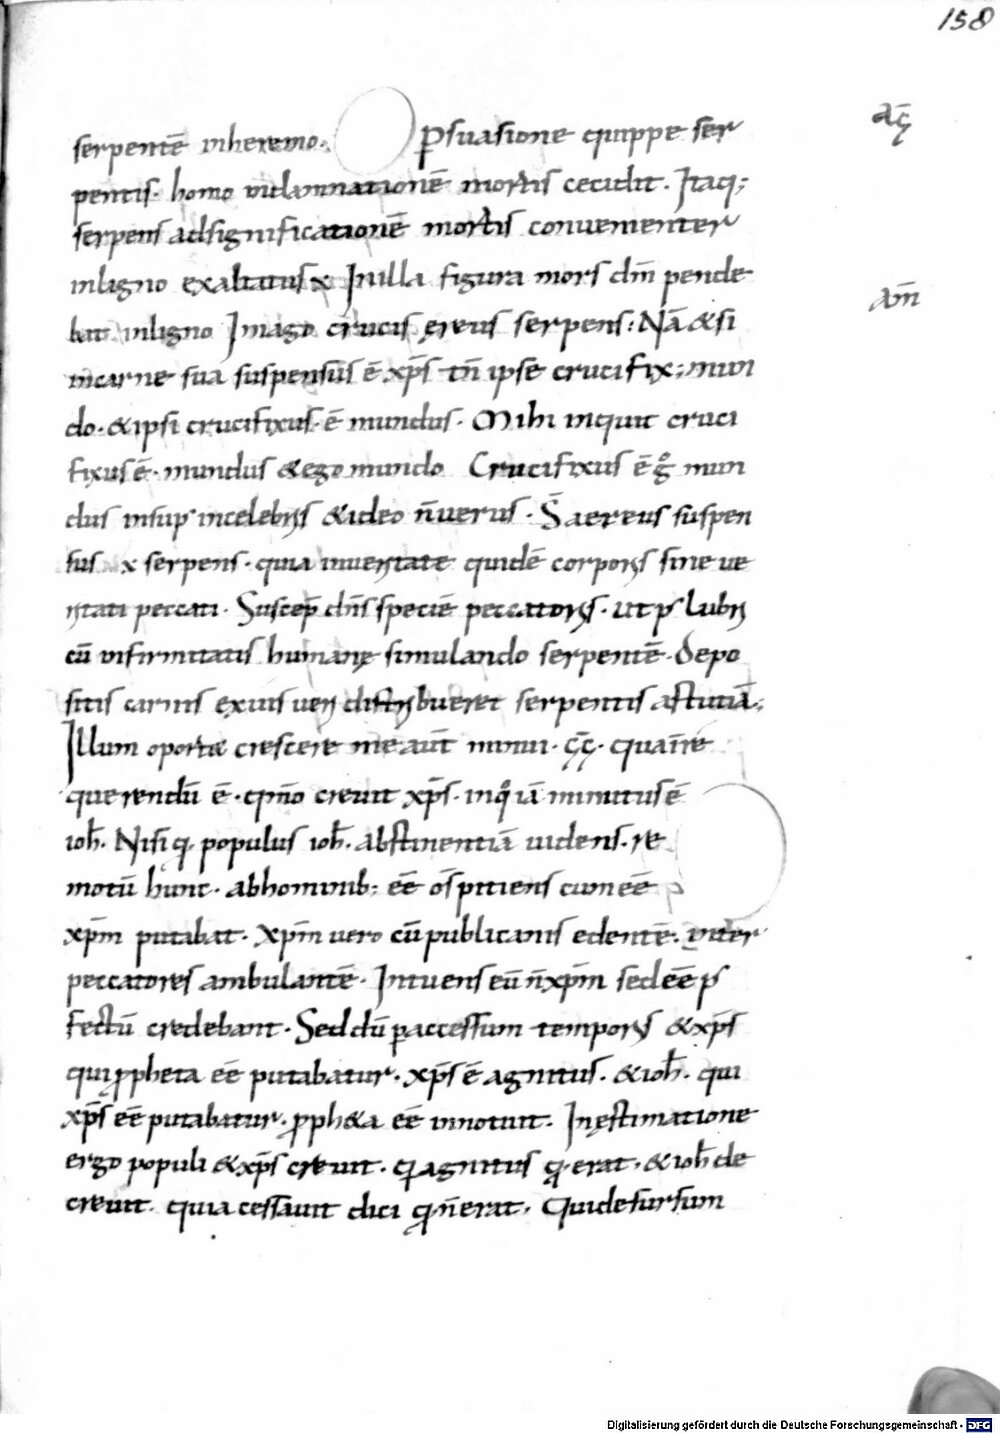 158
serpentē inheremo. Psuasione quippe ser
pentis. homo indamnationē mortis cecidit. Itaq;
serpens adsignificationē mortis convenienter
inligno exaltatus x Inilla figura mors dn̄i pende
bat. inligno Imago crucis ęreus serpens: Nā & si
incarne sua suspensus ē xp̄s tn̄ ipse crucifix; mun
do. & ipsi crucifixus. ē mundus. Mihi inquit cruci
fixus ē. mundus & ego mundo Crucifixus ē g̊ mun
dus insup incelebris & ideo n̄ uerus. S aereus suspen
sus x serpens. quia inueritate quidē corporis sine ue
ritati peccati. Suscep̄ dn̄s speciē peccatoris. ut p lubri
cū infirmitatis humanę simulando serpentē. depo
sitis carnis exuiis ueri distribueret serpentis astutiā;
Illum oport& crescere me aūt minui. quairē
querendū ē. qm̄o creuit xp̄s. inq̊ iā minutus ē
ioh̄. Nisi q populus ioh̄. abstinentiā uidens. re
motū hunc. abhominib; eē ospitiens cum eē
xp̄m putabat. Xp̄m uero cū publicanis edentē. inter
peccatores ambulantē. Intuens eū n̄ xp̄m sed eē p
fectū credebant. Sed dū p accessum temporis & xp̄s
qui ppheta eē putabatur. xp̄s ē agnitus. & ioh̄. qui
xp̄s eē putabatur. pph&a eē innotuit. In ęstimatione
ergo populi & xp̄s creuit. q agnitus q. erat. & ioh̄ de
creuit. quia cessauit dici q n̄ erat. Qui desursum
am̄
Digitalisierung gefördert durch die Deutsche Forschungsgemeinschaft - DFG